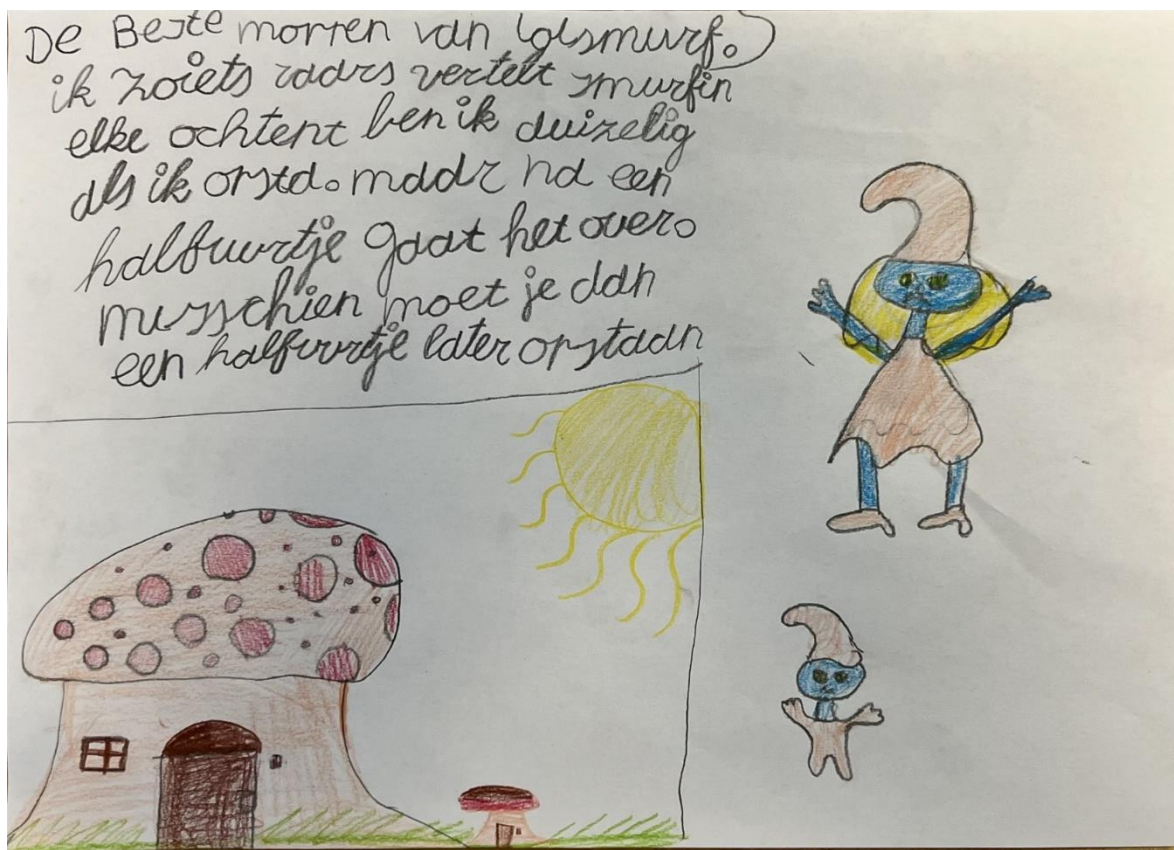 De Beste moppen van lolsmurf.
ik zoiets raars vertelt smurfin
elke ochtent ben ik duizelig
als ik opsta. maar na een
halfuurtje gaat het over.
musschien moet je dan
een halfuurtje later opstaan